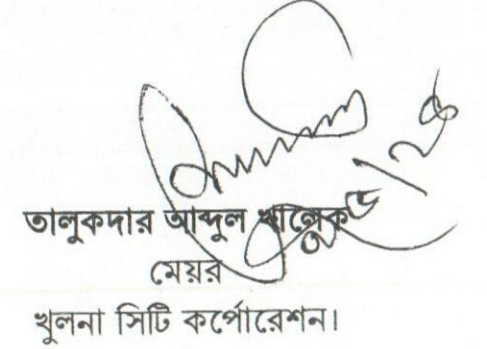 তালুকদার আব্দুল খালেক
মেয়র
খুলনা সিটি কর্পোরেশন।